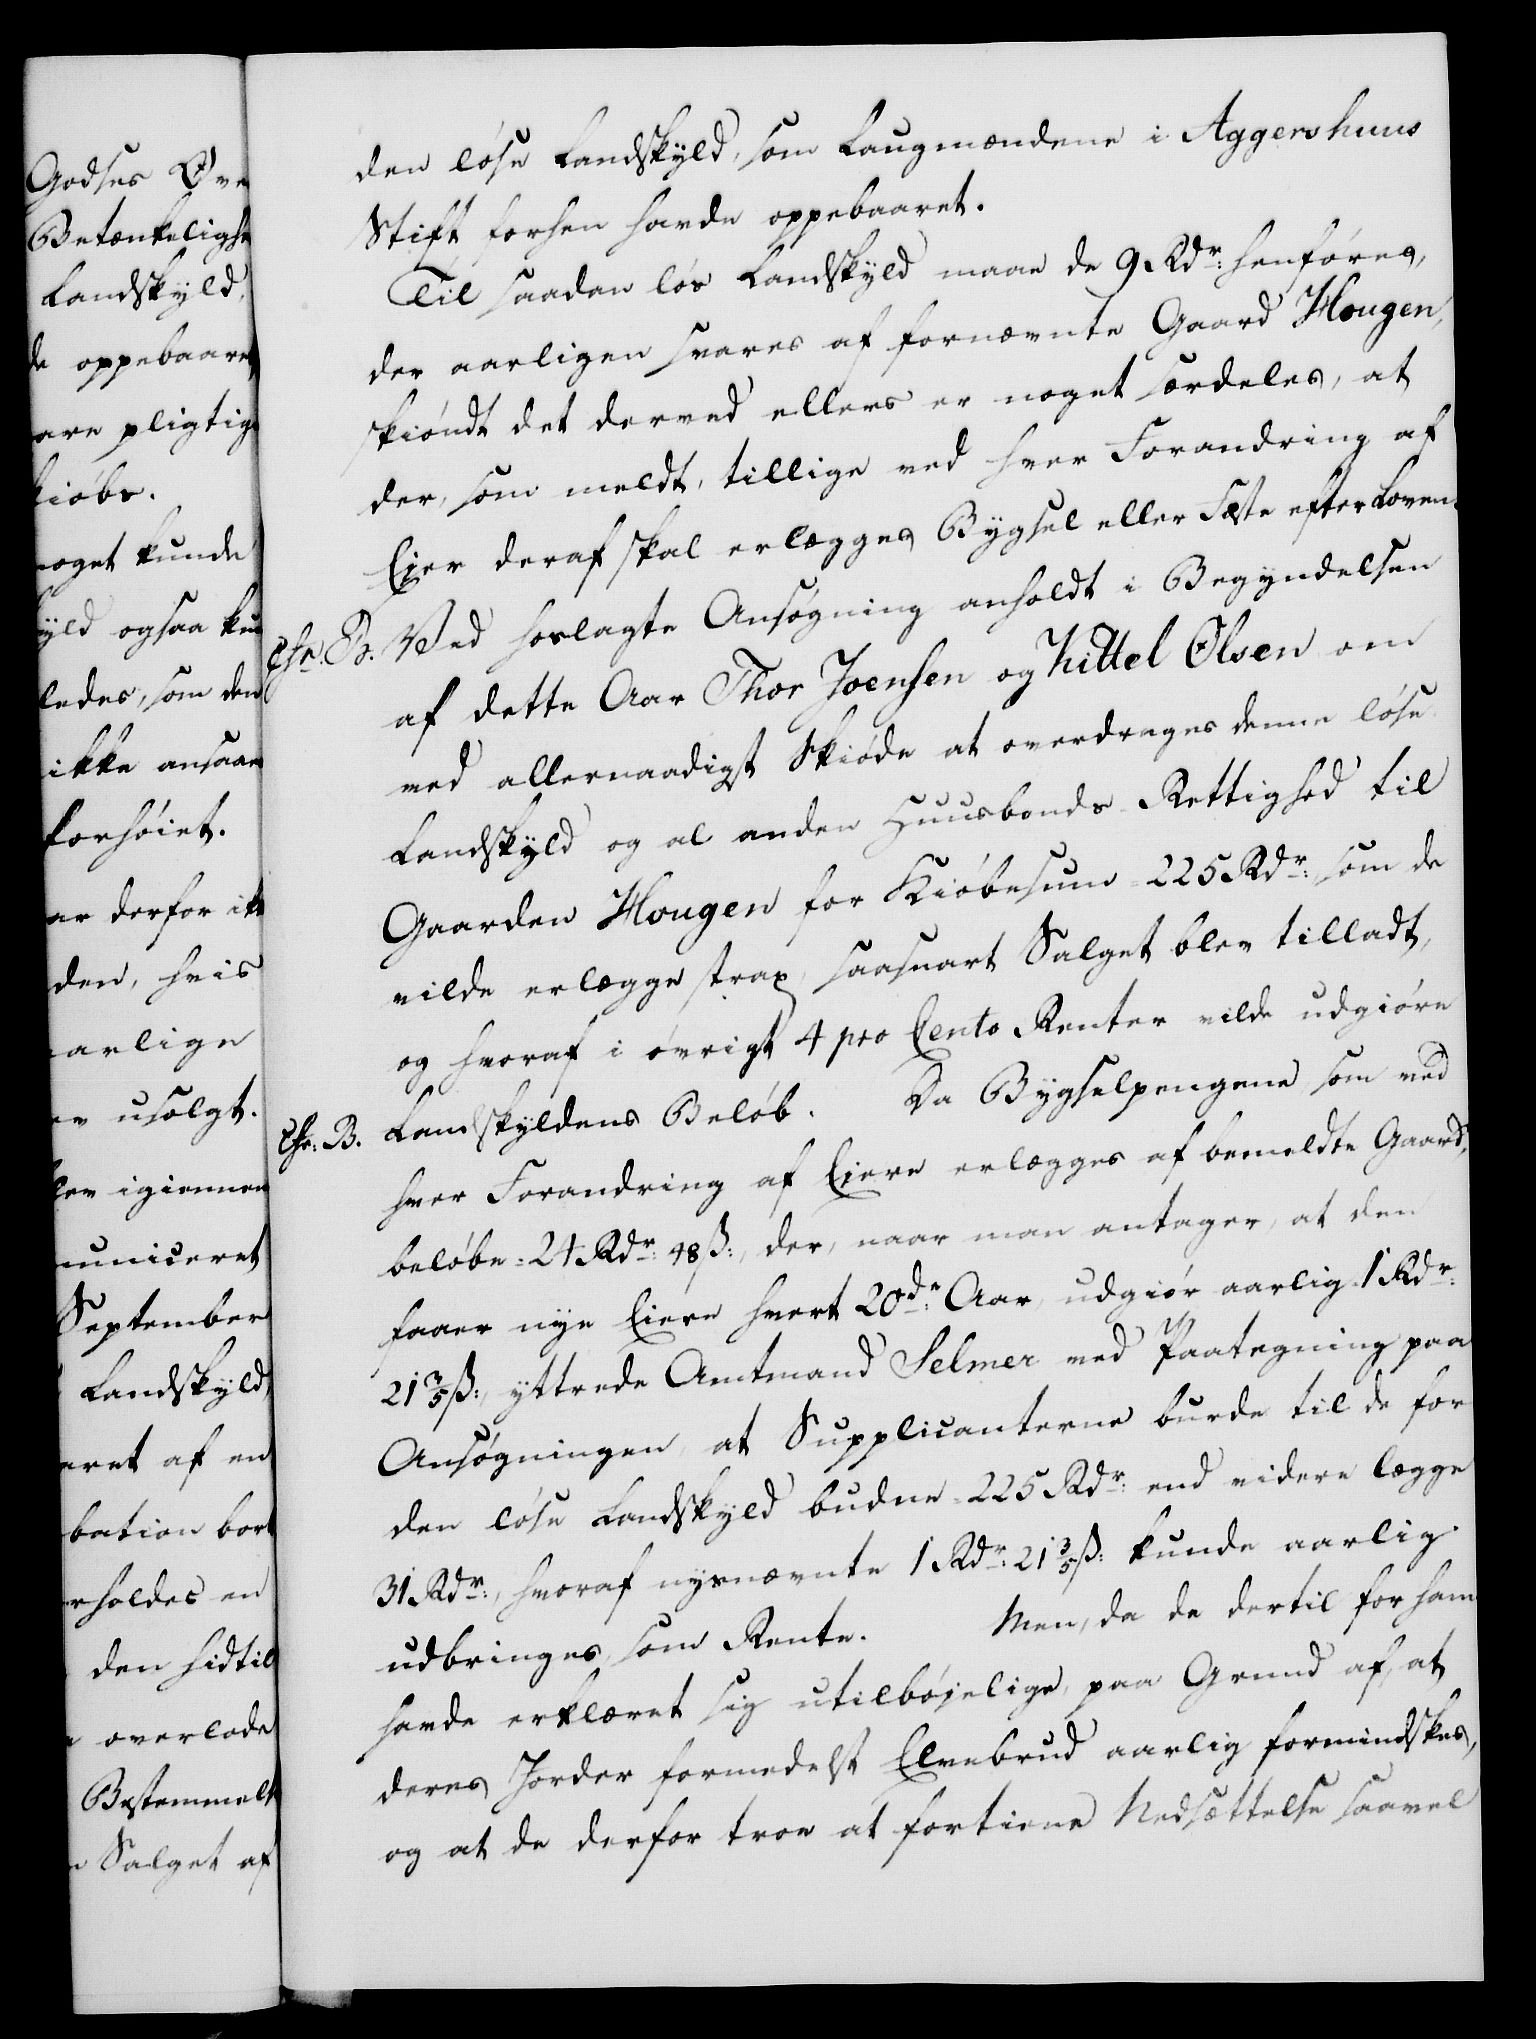 Godses Ove
Betænkelighe
Landskyld,
de oppebaaret
are pligtige
kiöbe.
noget kunde
yld ogsaa kun
ledes, som den
ikke ansaae
forhöiet.
ar derfor ikk
den, hvis
aarlige
ev usolgt.
lev igiennem
municeret
September
Landskyld,
eret af en
bation bort
rholdes en
den hidtil
overlode
Bestemmels
Salget af
den löse Landskyld, som Laugmændene i Aggershuus
Stift forhen havde oppebaaret.
Til saadan lös Landskyld maae de 9 Rdr: henföres,
der aarligen svares af fornævnte Gaard Hougen,
skiöndt det derved ellers er noget særdeles, at
der, som meldt, tillige ved hver Forandring af
Eier deraf skal erlægges Bygsel eller Fæste efter Loven.
Chr. B. Ved hoslagte Ansögning anholdt i Begyndelsen
af dette Aar Thor Joensen og Kittel Olsen om
ved allernaadigst Skiöde at overdrages denne löse
Landskyld og al anden Huusbonds Rettighed til
Gaarden Hougen for Kiöbesum = 225 Rdr: som de
vilde erlægge strax, saasnart Salget blev tilladt,
og hvoraf i övrigt 4 pro Cento Renter vilde udgiöre
Chr: B. Landskyldens Belöb. Da Bygselpengene som ved
hver Forandring af Eiere erlægges af bemeldte Gaard,
belöbe = 24 Rdr: 48 ß:, der, naar man antager, at den
faaer nye Eiere hvert 20de: Aar, udgiör aarlig 1 Rdr:
21 3/5 ß:, yttrede Amtmand Selmer ved Paategning paa
Ansögningen, at Supplicanterne burde til de for
den löse Landskyld budne = 225 Rdr: end videre lægge
31 Rdr:, hvoraf nysnævnte 1 Rdr: 21 3/5 ß: kunde aarlig
udbringes, som Rente. Men, da de dertil for ham
havde erklæret sig utilböjelige, paa Grund af, at
deres Jorder formedelst Elvebrud aarlig formindskes,
og at de derfor troe at fortiene Nedsættelse saavel